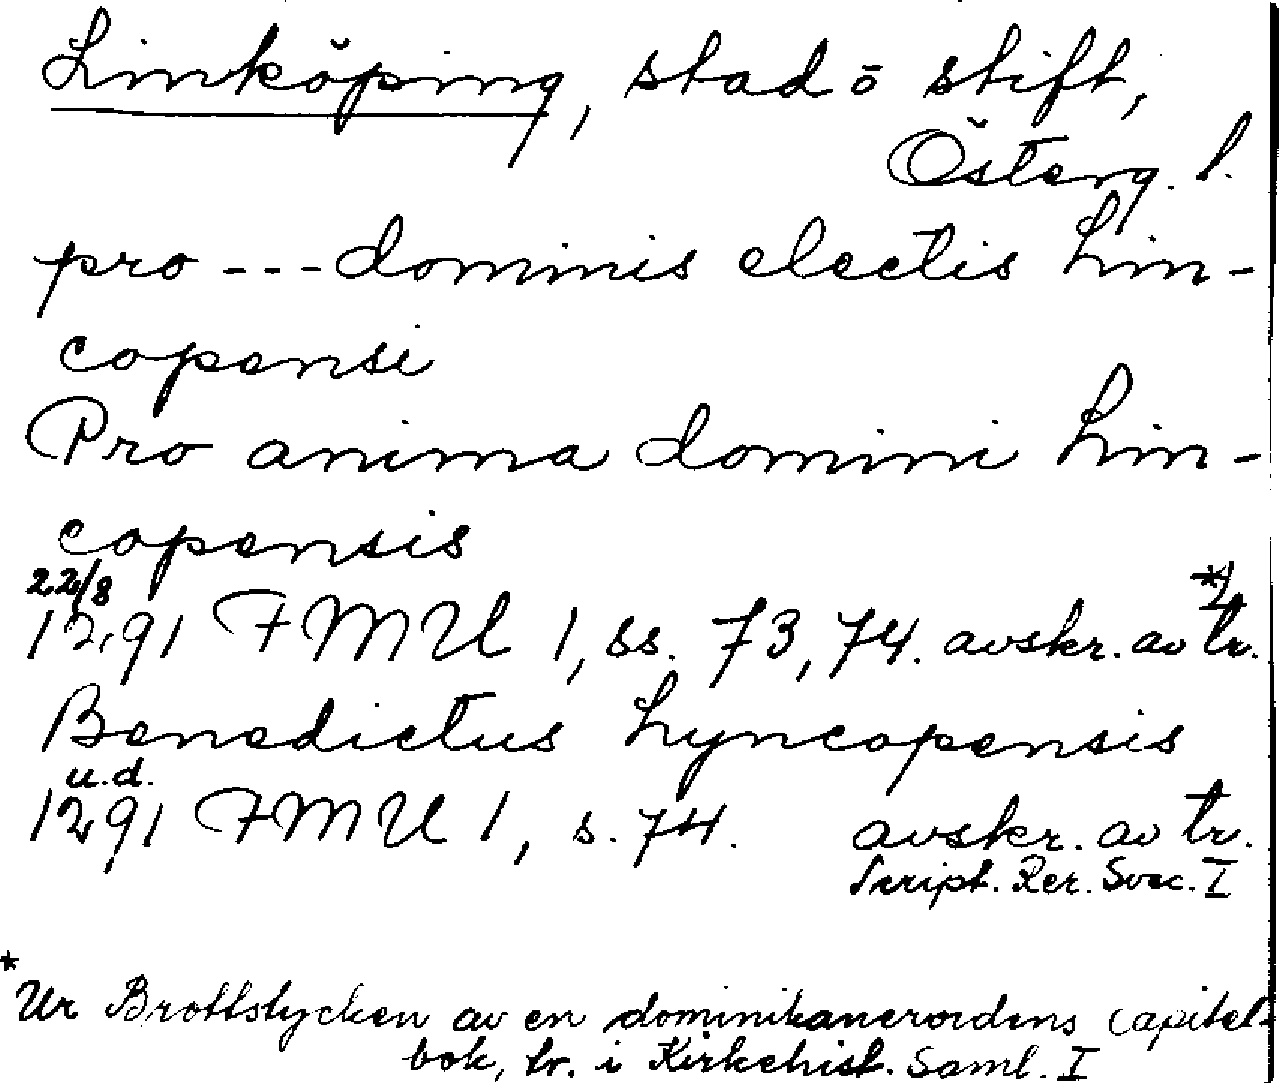 Linköping, stad ō stift,
Österg. l.
pro --- dominis electis Lin-
copensi
Pro anima domini Lin-
copensis
22/8 *)
1291 FMU 1, ss. 73, 74. avskr. av tr.
Benedictus Lyncopensis
u.d.
1291 FMU 1, s. 74. avskr. av tr.
Script. Rer. Svec. I
* Ur Brottstycken av en dominikanerordens capitel-
bok, tr. i Kirkehist. Saml. I